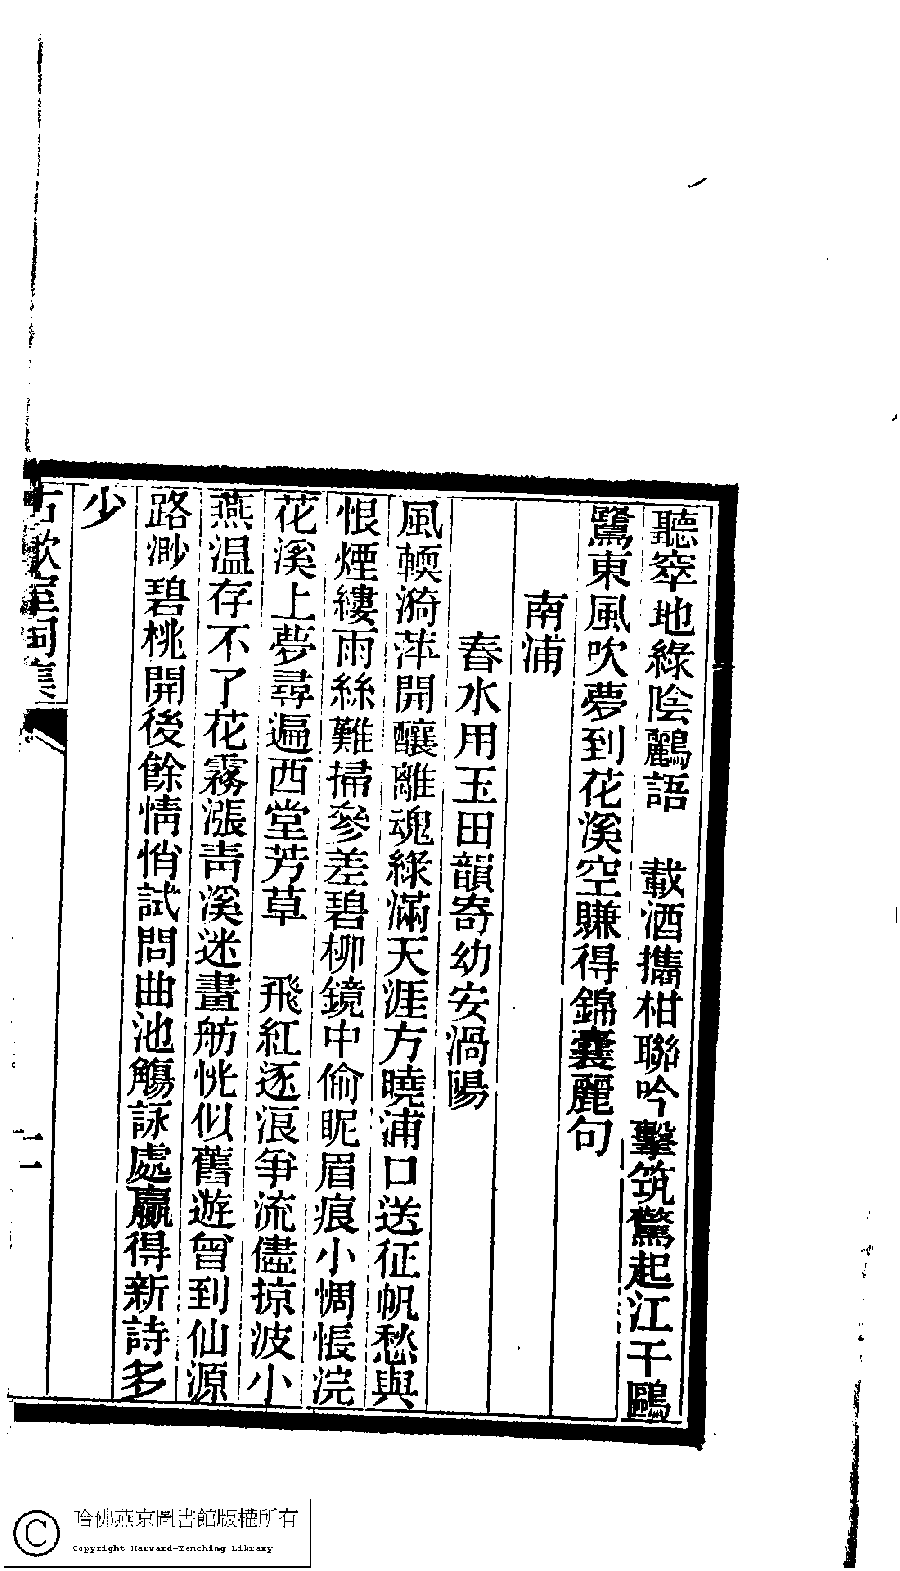 聽窣地綠陰鸝語　載酒攜柑聯吟擊筑驚起江干鷗
鷺東風吹夢到花溪空賺得錦囊麗句
南浦
春水用玉田韻寄幼安渦陽
風輭漪萍開釀離魂綠滿天涯方曉浦口送征帆愁與
恨煙縷雨絲難掃參差碧柳鏡中偷眤眉痕小惆悵浣
花溪上夢尋遍西堂芳草　飛紅逐浪爭流儘掠波小
燕温存不了花霧漲靑溪迷畫舫恍似舊遊曾到仙源
路渺碧桃開後餘情悄試問曲池觴詠處贏得新詩多
少
二
哈佛燕京圖書館版權所有
Copyright Harvard-Yenching Library